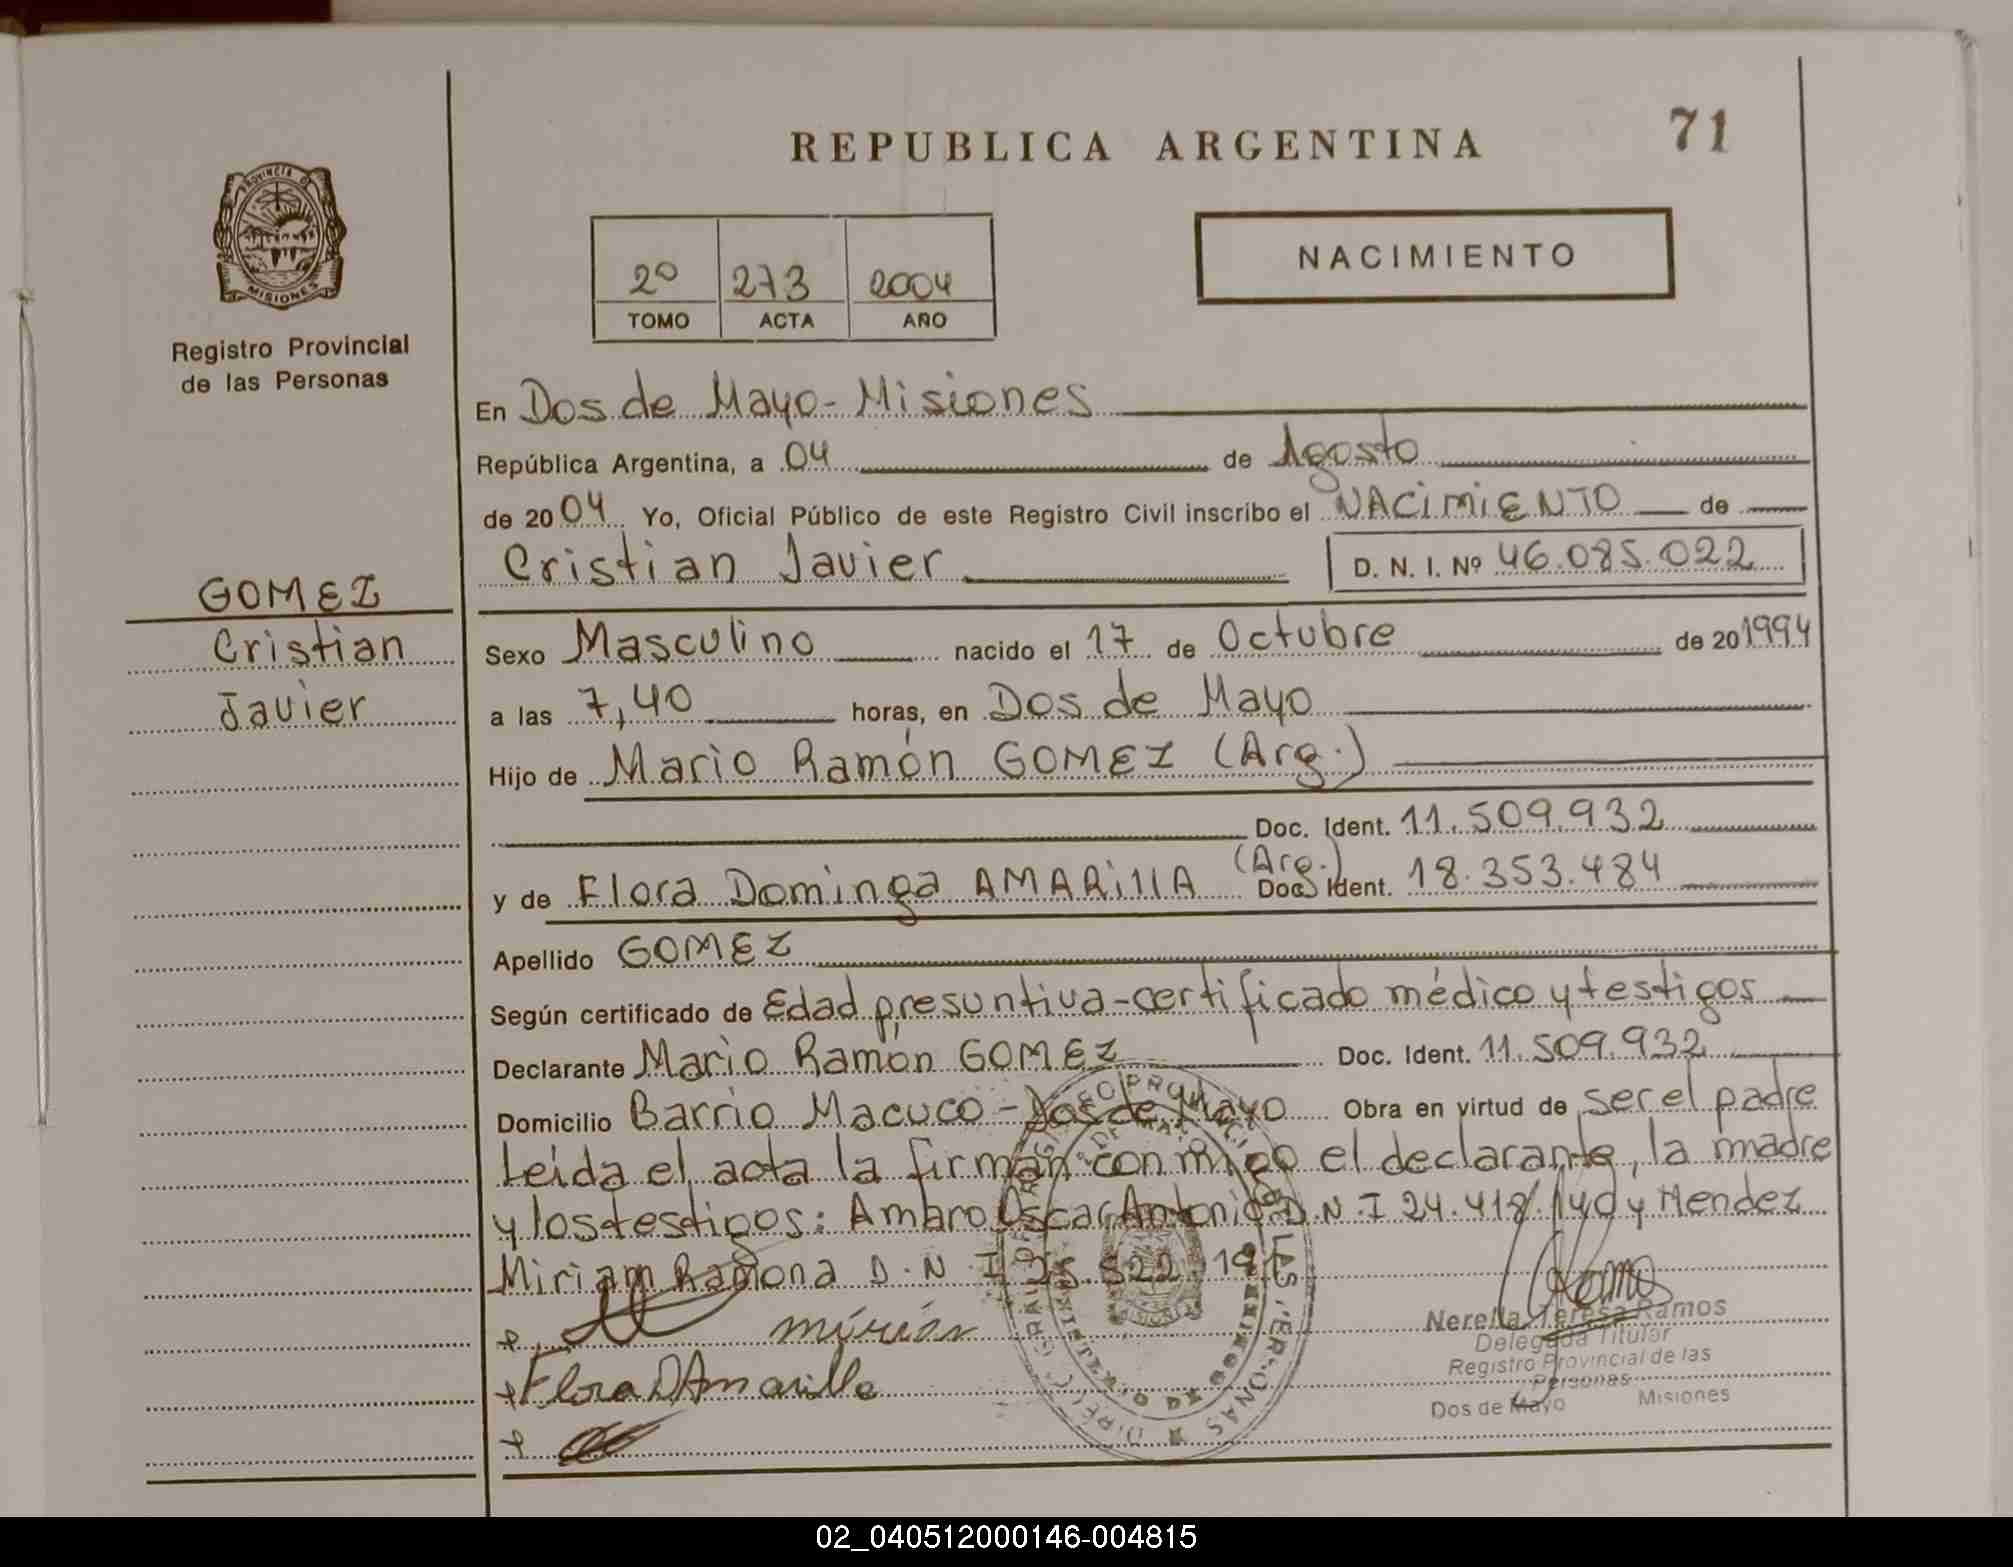 REPUBLICA ARGENTINA
71
PROVINCIA DE
MISIONES
Registro Provincial
de las Personas
2º 273 2004
TOMO ACTA AÑO
NACIMIENTO
GOMEZ
Cristian
Javier
En Dos de Mayo - Misiones
República Argentina, a 04 de Agosto
de 2004 Yo, Oficial Público de este Registro Civil inscribo el NACIMIENTO de
Cristian Javier D. N. I. Nº 46.085.022
Sexo Masculino nacido el 17 de Octubre de 20 1994
a las 7,40 horas, en Dos de Mayo
Hijo de Mario Ramón GOMEZ (Arg.)
Doc. Ident. 11.509.932
y de Flora Dominga AMARillA (Arg.) Doc. Ident. 18.353.484
Apellido GOMEZ
Según certificado de Edad presuntiva - certificado médico y testigos
Declarante Mario Ramón GOMEZ Doc. Ident. 11.509.932
Domicilio Barrio Macuco - Dos de Mayo Obra en virtud de ser el padre
Leida el acta la firman conmigo el declarante, la madre
y los testigos: Amaro Oscar Antonio D.N.I 24.418.140 y Mendez
Miriam Ramona D.N.I 25.522.19
mirian
Flora D Amarilla
Nerella Teresa Ramos
Delegada Titular
Registro Provincial de las
Personas
Dos de Mayo Misiones
02_040512000146-004815